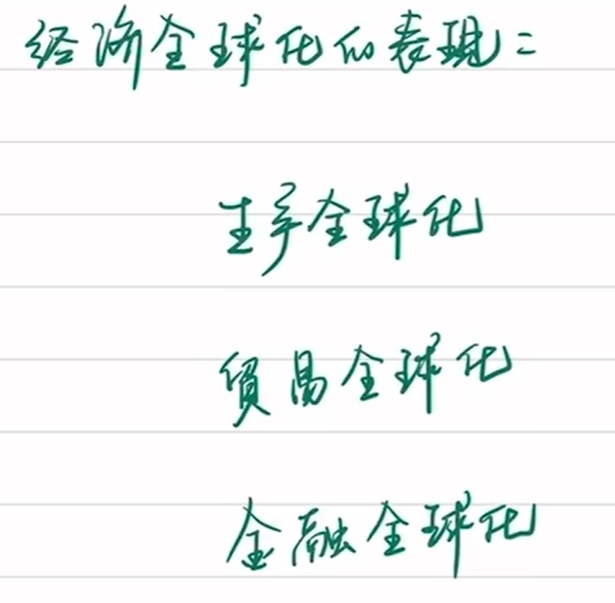 经济全球化的表现：
生产全球化
贸易全球化
金融全球化